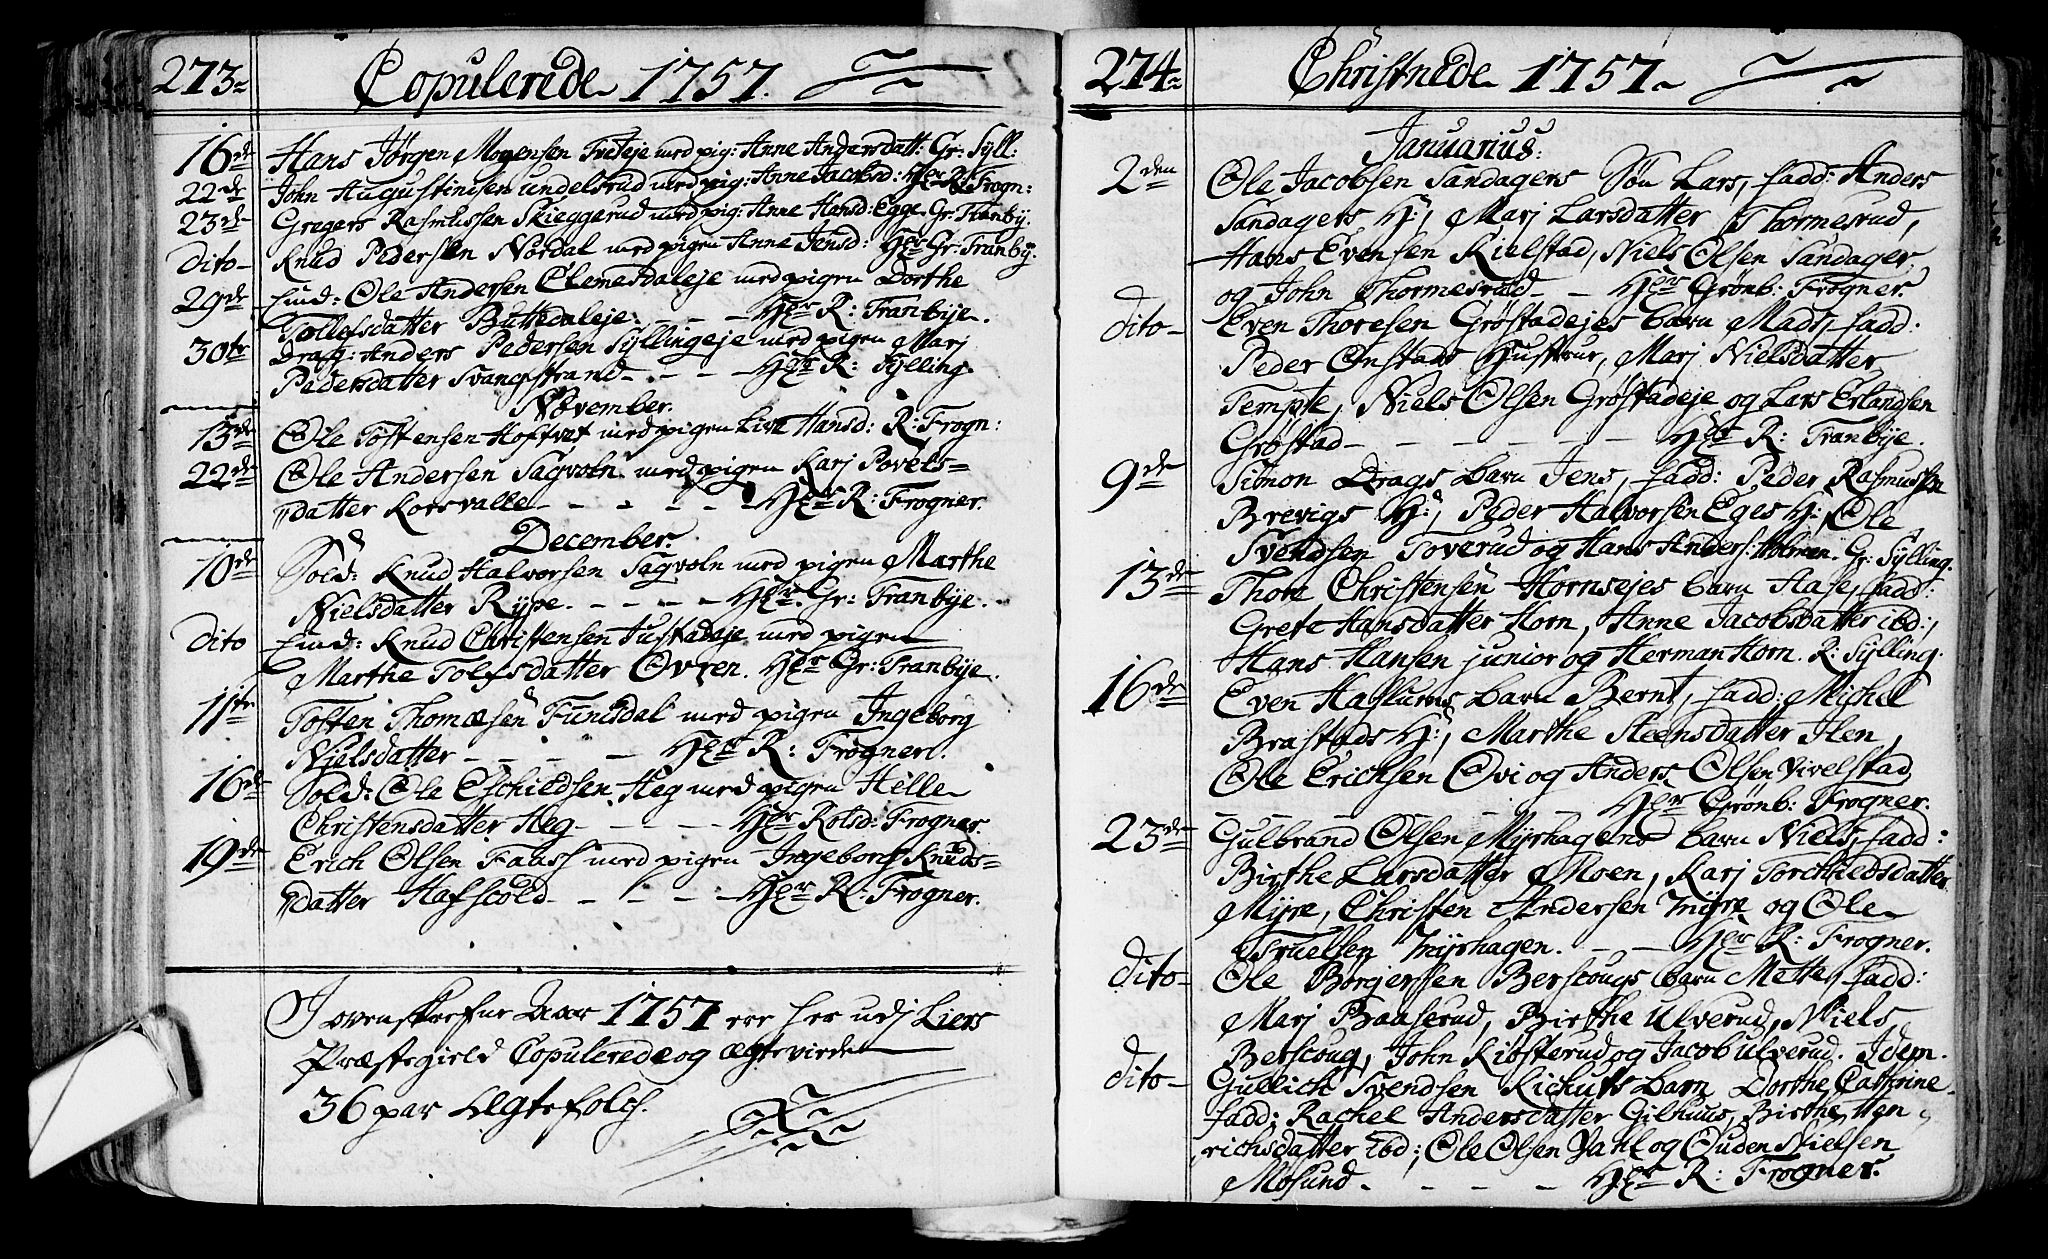 273
Copulerede 1757.
16de Hans Jörgen Mogensen Tveteje med pig: Anne Andersdatt: Gr: Syll:
22de John Augustinisen undelsrud med pig: Anne Jacobsd: Hr R: Frogn:
23de Gregers Rasmussen Skieggerud med pig: Anne Hansd: Egge. Gr: Tranby.
Dito Knud Pedersen Nordal med pigen Anne Jensd: Hr Gr: Tranby.
29de Lind: Ole Andersen Clemesdaleje med pigen Dorthe
Tollefsdatter Buttedaleje. - - - Hr R: Tranbye.
30te Drag: Anders Pedersen Syllingeje med pigen Marj
Pedersdatter Svangstrand - - - Hr R: Sylling
November.
13de Ole Tostensen Hoftvet med pigen Live Hansd: R: Frogn:
22de Ole Andersen Sagvoln med pigen Karj Povels=
datter Korsvalle - - - - - Hr R: Frogner.
December.
10de Sold: Knud Halvorsen Sagvoln med pigen Marthe
Nielsdatter Rype. - - - - Hr Gr: Tranbye.
Dito Lind: Knud Christensen Tustadeje med pigen
Marthe Tolfsdatter Øvren. Hr Gr: Tranbye.
11te Tosten Thomæsen Funisdal med pigen Ingeborg
Nielsdatter - - - - - Hr R: Frogner.
16de Sold: Ole Eschildsen Heg med pigen Helle
Christensdatter Heg - - - - Hr Rolsd: Frogner.
19de Erich Olsen Faash med pigen Ingeborg Knuds=
datter Hafscold - - - - Hr R: Frogner.
I ovenskrefne Aar 1757 ere her udj Liers
Præstegield Copulerede og ægteviede
36 par Ægtefolch.
274
Christnede 1757
Januarius:
2den Ole Jacobsen Sandagers Søn Lars, fadd: Anders
Sandagers H:, Marj Larsdatter Thormesrud,
Hans Evensen Kielstad, Niels Olsen Sandager
og John Thormesrud - - Hr Grønb: Frogner.
Dito Even Thoresen Grøstadejes barn Mads, fadd:
Peder Onstads Hustrue, Marj Nielsdatter
Tempte, Niels Olsen Grøstadeje og Lars Erlandsen
Grøstad - - - - - - - Hr R: Tranbye.
9de Simon Drags barn Jens, fadd: Peder Rasmussen
Brevigs H:, Peder Halvorsen Eges H:, Ole
Svendsen Toverud og Hans Anders: Holmen. Gr: Sylling.
13de Thore Christensen Hornsejes barn Aase, fadd:
Grete Hansdatter Horn, Anne Jacobsdatter ibd:,
Hans Hansen junior og Herman Horn. R: Sylling.
16de Even Haslums barn Bernt, fadd: Michel
Brastads H:, Marthe Steensdatter Ilen,
Ole Erichsen Ovi og Anders Olsen Vivelstad
- - - - - Hr Grønb: Frogner.
23de Gulbrand Olsen Myrhagens barn Niels, fadd:
Birthe Larsdatter Moen, Karj Torchildsdatter
Myre, Christen Andersen Myre og Ole
Truelsen Myrhagen. - - Hr R: Frogner.
Dito Ole Borgerssen Berscougs barn Mette, fadd:
Marj Baaserud, Birthe Ulverud, Niels
Berscoug, John Kiosterud og Jacob Ulverud. Idem.
Dito Gullich Svendsen Kickuts barn Dorthe Cathrine
fadd: Rachel Andersdatter Gilhuus, Birthe Hen
richsdatter ibd:, Ole Olsen Dahl og Ouden Nielsen
Mosund - - - - - Hr R: Frogner.